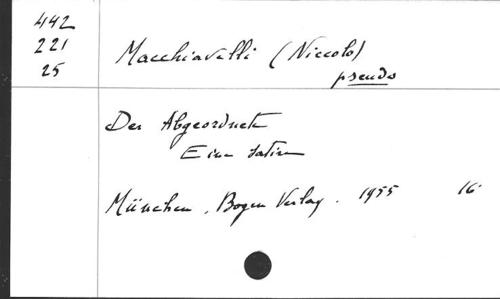 442
221
25
Macchiavelli (Niccolo)
pseudo
Der Abgeordnete
Eine Satire
München, Bogen Verlag. 1955 16°